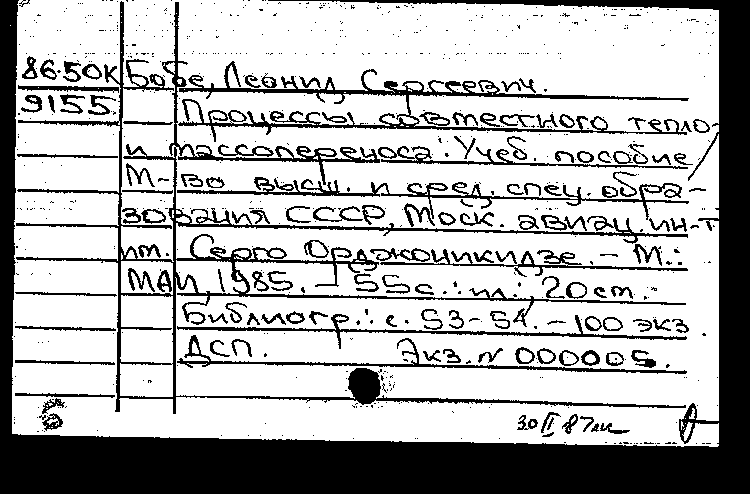 86.50К Бобе, Леонид Сергеевич.
9155 Процессы совместного тепло-
и массопереноса: Учеб. пособие /
М-во высш. и сред. спец. обра-
зования СССР, Моск. авиац. ин-т
им. Серго Орджоникидзе. - М.:
МАИ, 1985. - 55с.: ил.; 20 см. -
Библиогр.: с. 53-54. - 100 экз.
ДСП. Экз. N 000005.
Б
30 II 87